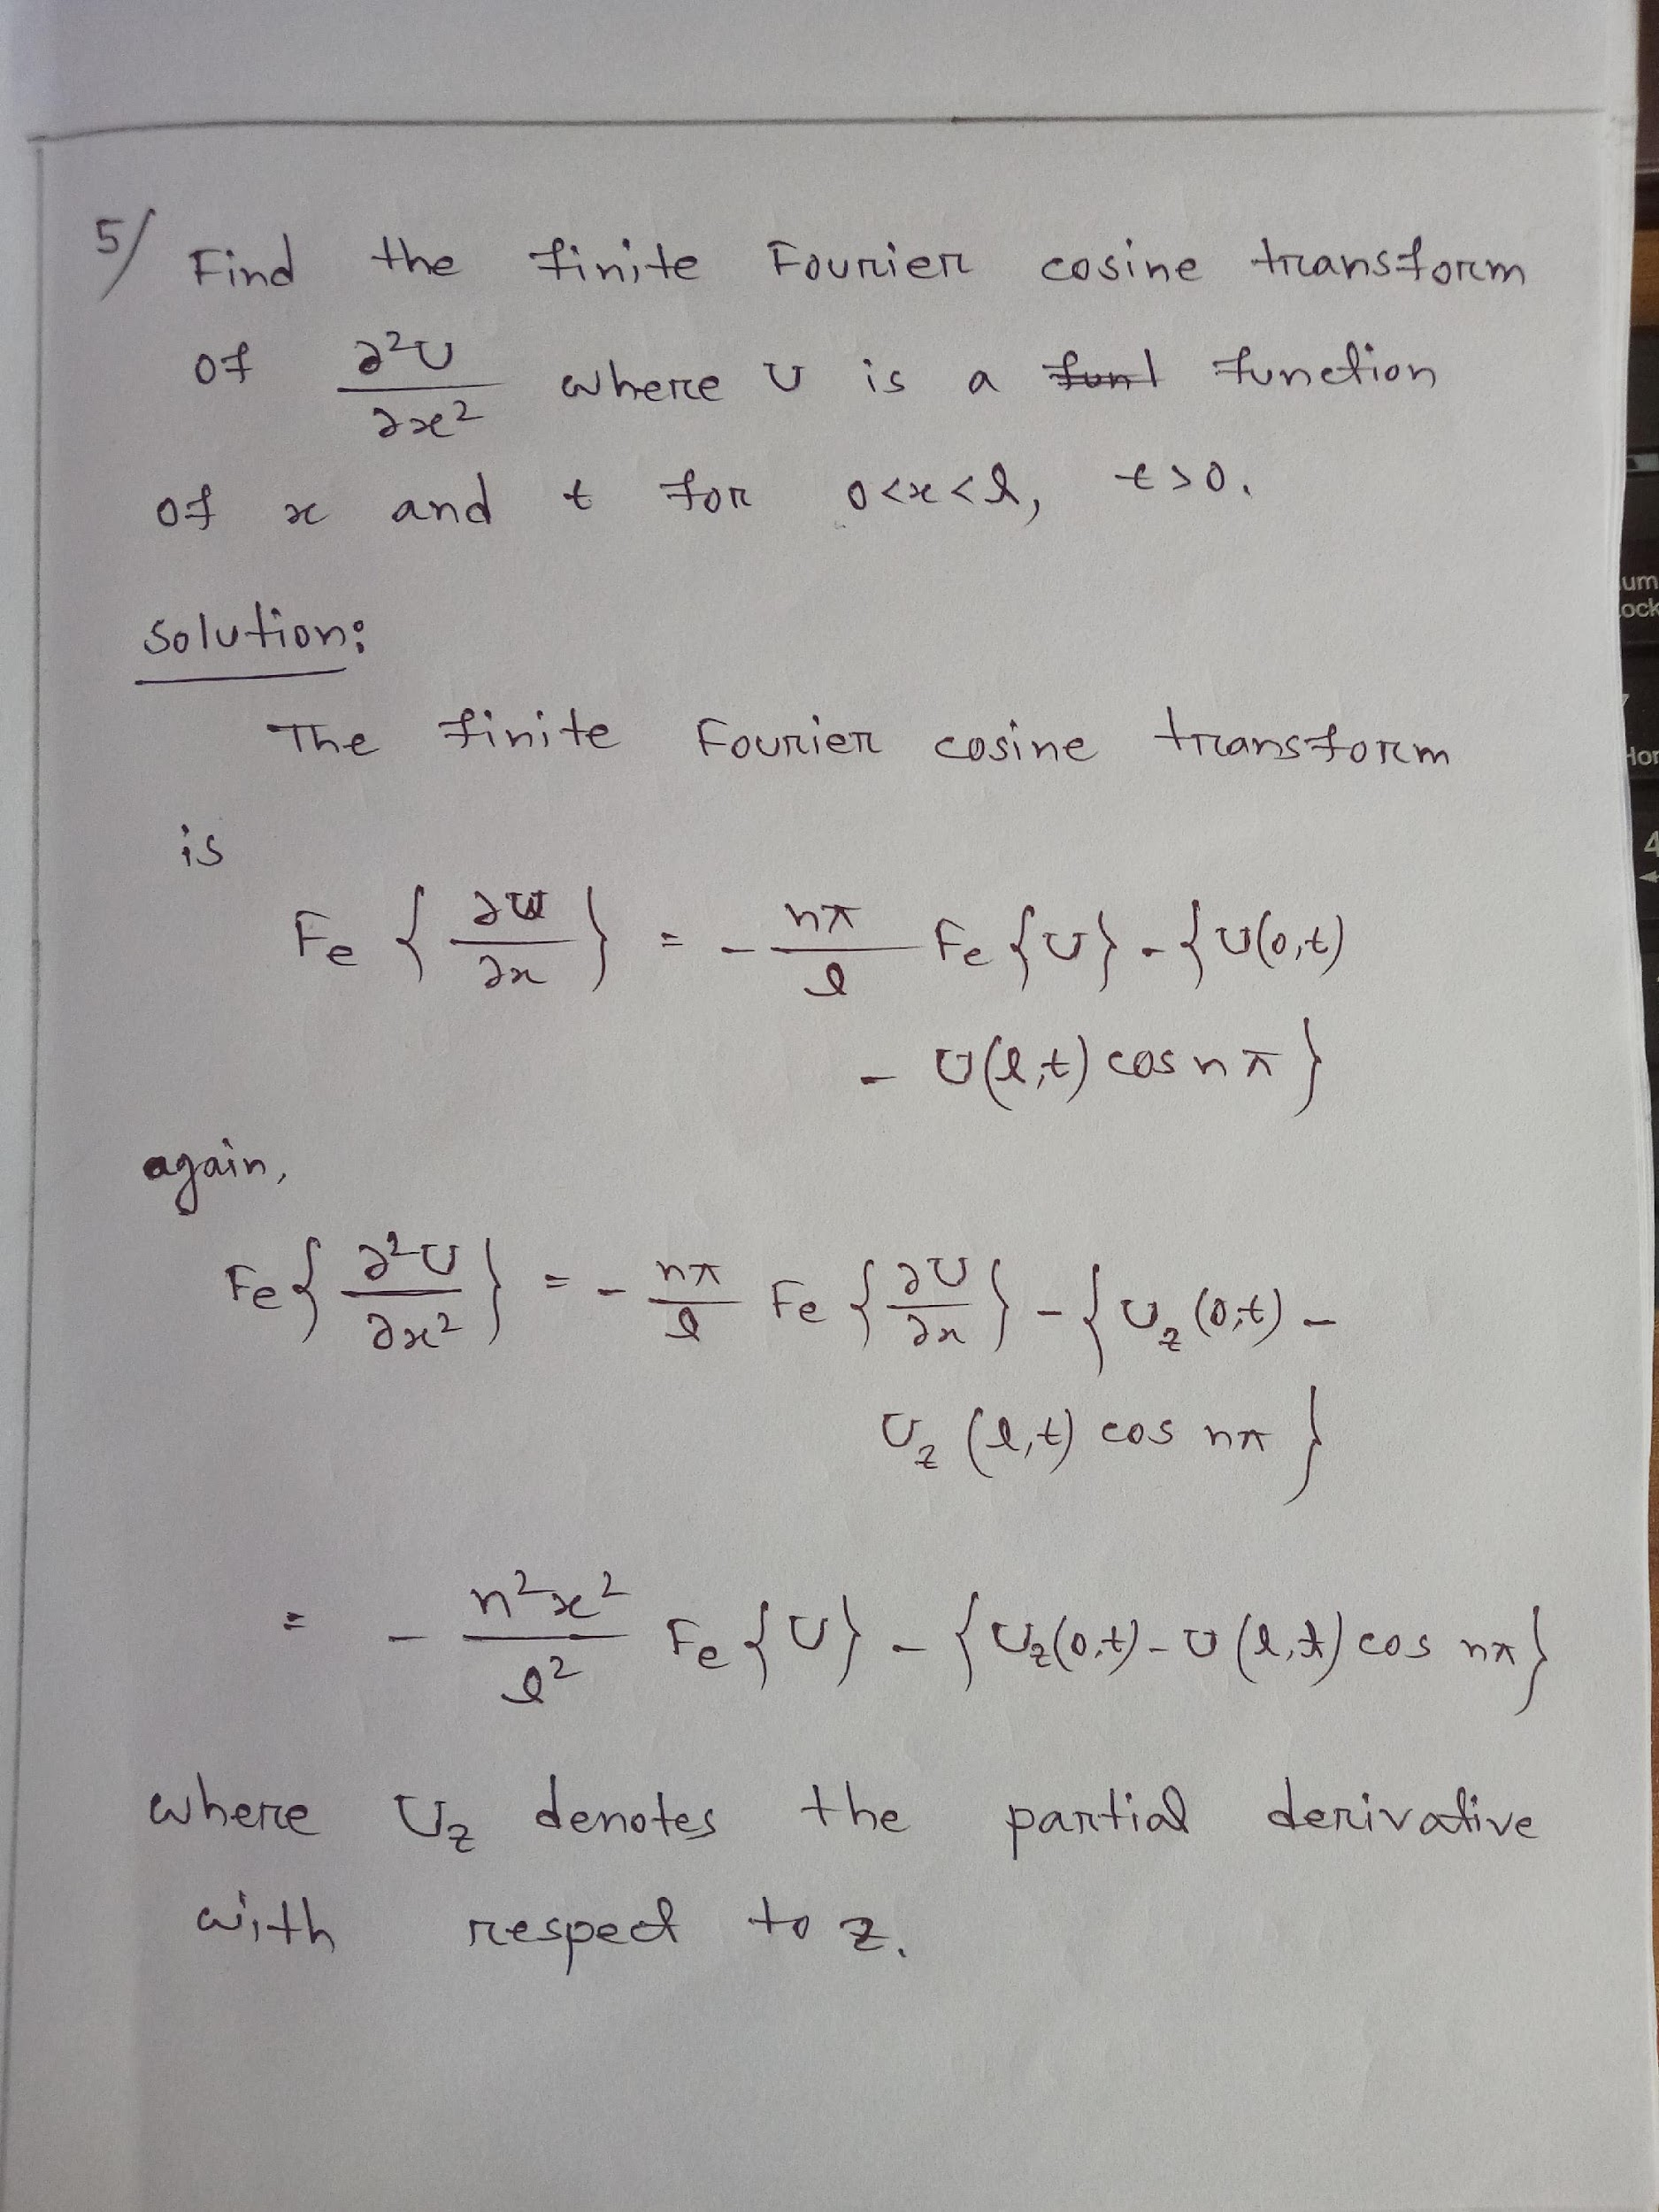 5/ Find the finite Fourier cosine transform
of ∂²U/∂x² where U is a funt function
of x and t for 0<x<l, t>0.
Solution:
The finite Fourier cosine transform
is
Fc {∂U/∂x} = - nπ/l Fc {U} - {U(0,t)
- U(l,t) cos nπ}
again,
Fc {∂²U/∂x²} = - nπ/l Fc {∂U/∂x} - {U_z (0,t) -
U_z (l,t) cos nπ}
= - n²x²/l² Fc {U} - {U_z(0,t) - U (l,t) cos nπ}
where U_z denotes the partial derivative
with respect to z.
um
ock
Hor
4